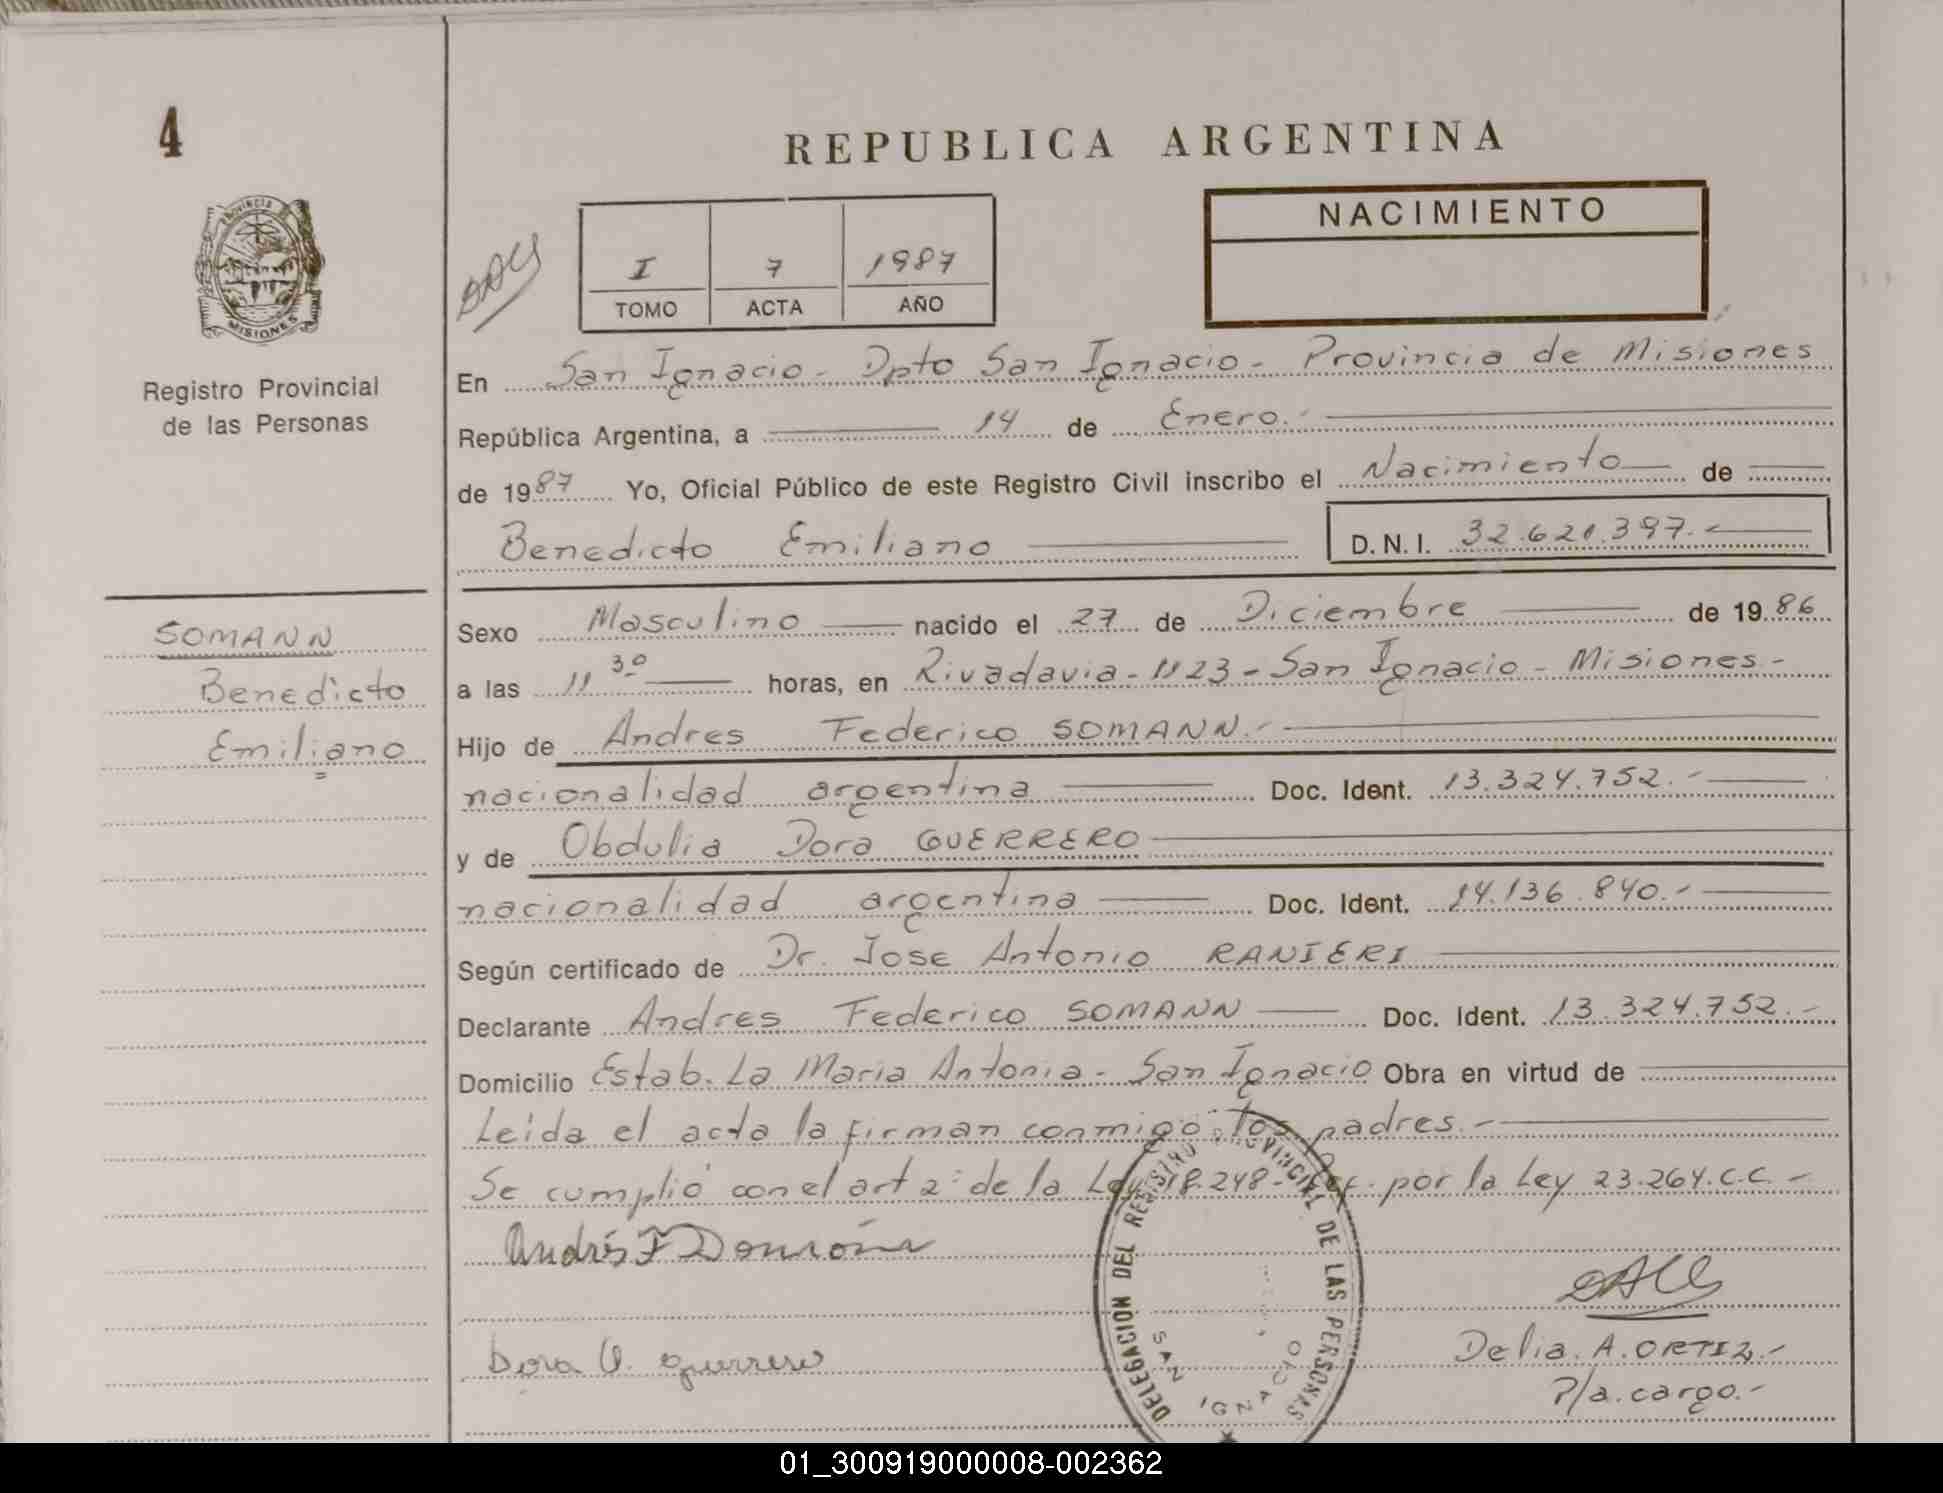 4
REPUBLICA ARGENTINA
PROVINCIA DE
MISIONES
Registro Provincial
de las Personas
I 7 1987
TOMO ACTA AÑO
NACIMIENTO
En San Ignacio - Dpto San Ignacio - Provincia de Misiones
República Argentina, a 14 de Enero.-
de 1987 Yo, Oficial Público de este Registro Civil inscribo el Nacimiento de
Benedicto Emiliano D.N.I. 32.621.397.-
SOMANN
Benedicto
Emiliano
Sexo Masculino nacido el 27 de Diciembre de 1986
a las 11 30 horas, en Rivadavia - 1123 - San Ignacio - Misiones -
Hijo de Andres Federico SOMANN.-
nacionalidad argentina Doc. Ident. 13.324.752.-
y de Obdulia Dora GUERRERO
nacionalidad argentina Doc. Ident. 14.136.840.-
Según certificado de Dr. Jose Antonio RANIERI
Declarante Andres Federico SOMANN Doc. Ident. 13.324.752.-
Domicilio Estab. La Maria Antonia - San Ignacio Obra en virtud de
Leida el acta la firman conmigo los padres.-
Se cumplió con el art 2: de la Ley 18.248 - Ref. por la Ley 23.264.C.C.-
DELEGACION DEL REGISTRO PROVINCIAL DE LAS PERSONAS
SAN IGNACIO
Dora O. Guerrero
Delia.A.ORTIZ.-
P/a.cargo.-
01_300919000008-002362